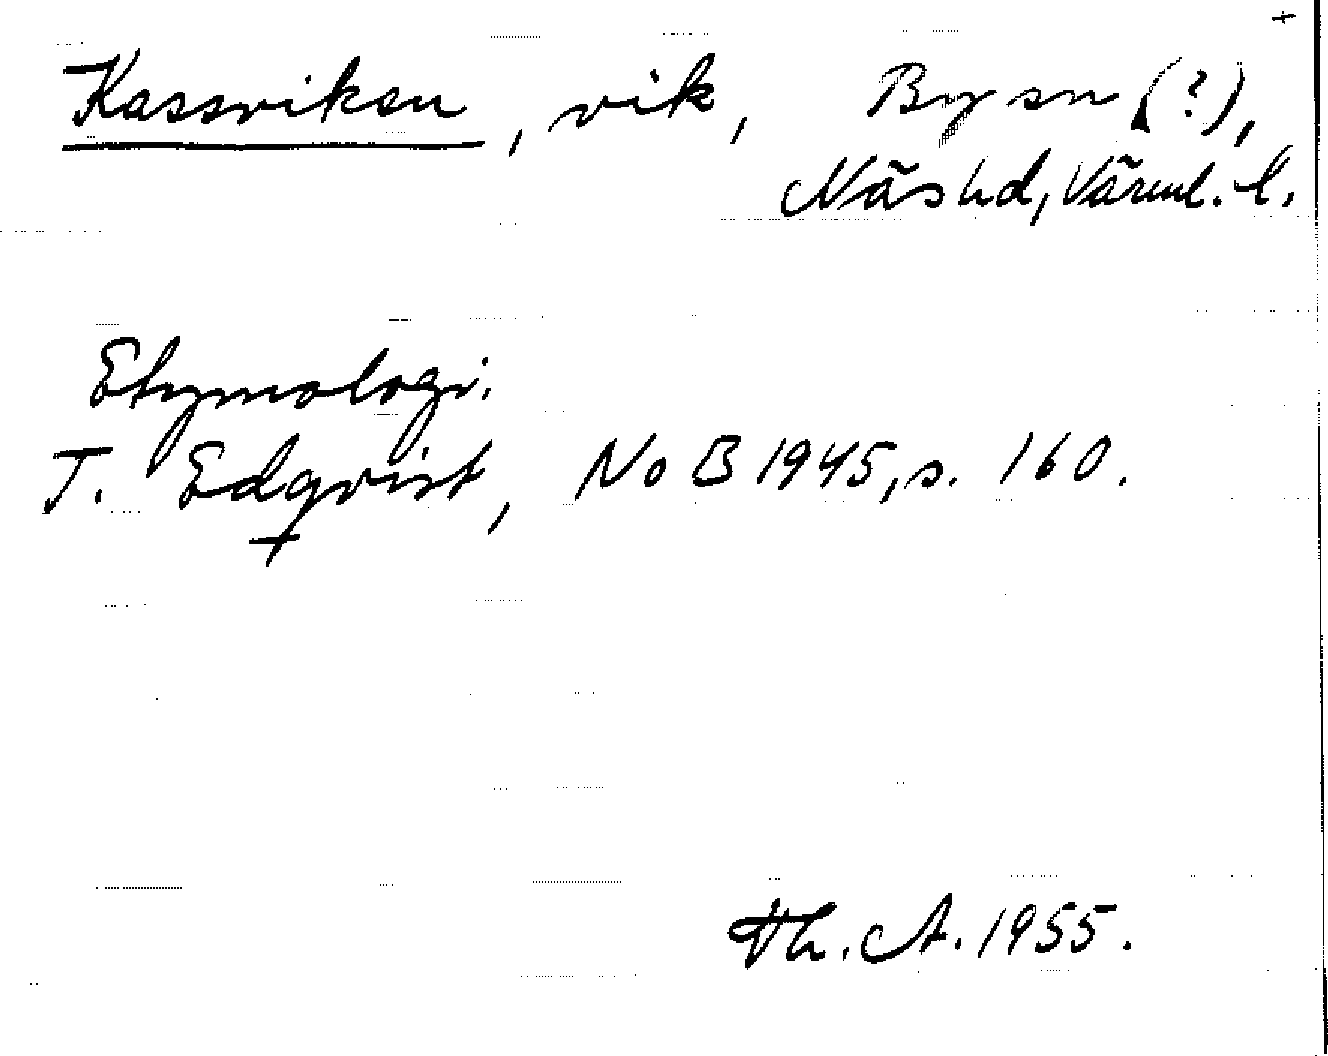 +
Kassviken, vik, By sn (?),
Näs hd, Värml. l.
Etymologi.
T. Edqvist, NoB 1945, s. 160.
+
Th. A. 1955.